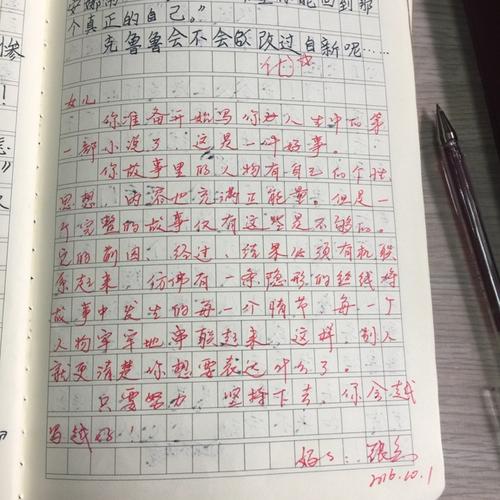 能回到那
个真正的自己。》
克鲁鲁会不会欲改过自新呢……
惨
!
》
优
女儿：
你准备开始写你人生中的第
一部小说了，这是一件好事。
你故事里的人物有自己的个性
思想，内容也充满正能量。但是一
个完整的故事仅有这些是不够的。
它的前因、经过、结果必须有机联
系起来，仿佛有一条隐形的丝线将
故事中发生的每一个情节、每一个
人物牢牢地串联起来，这样，别人
就更清楚你想要表达什么了。
只要努力，坚持下去，你会越
写越好！
妈妈：张
2016.10.1